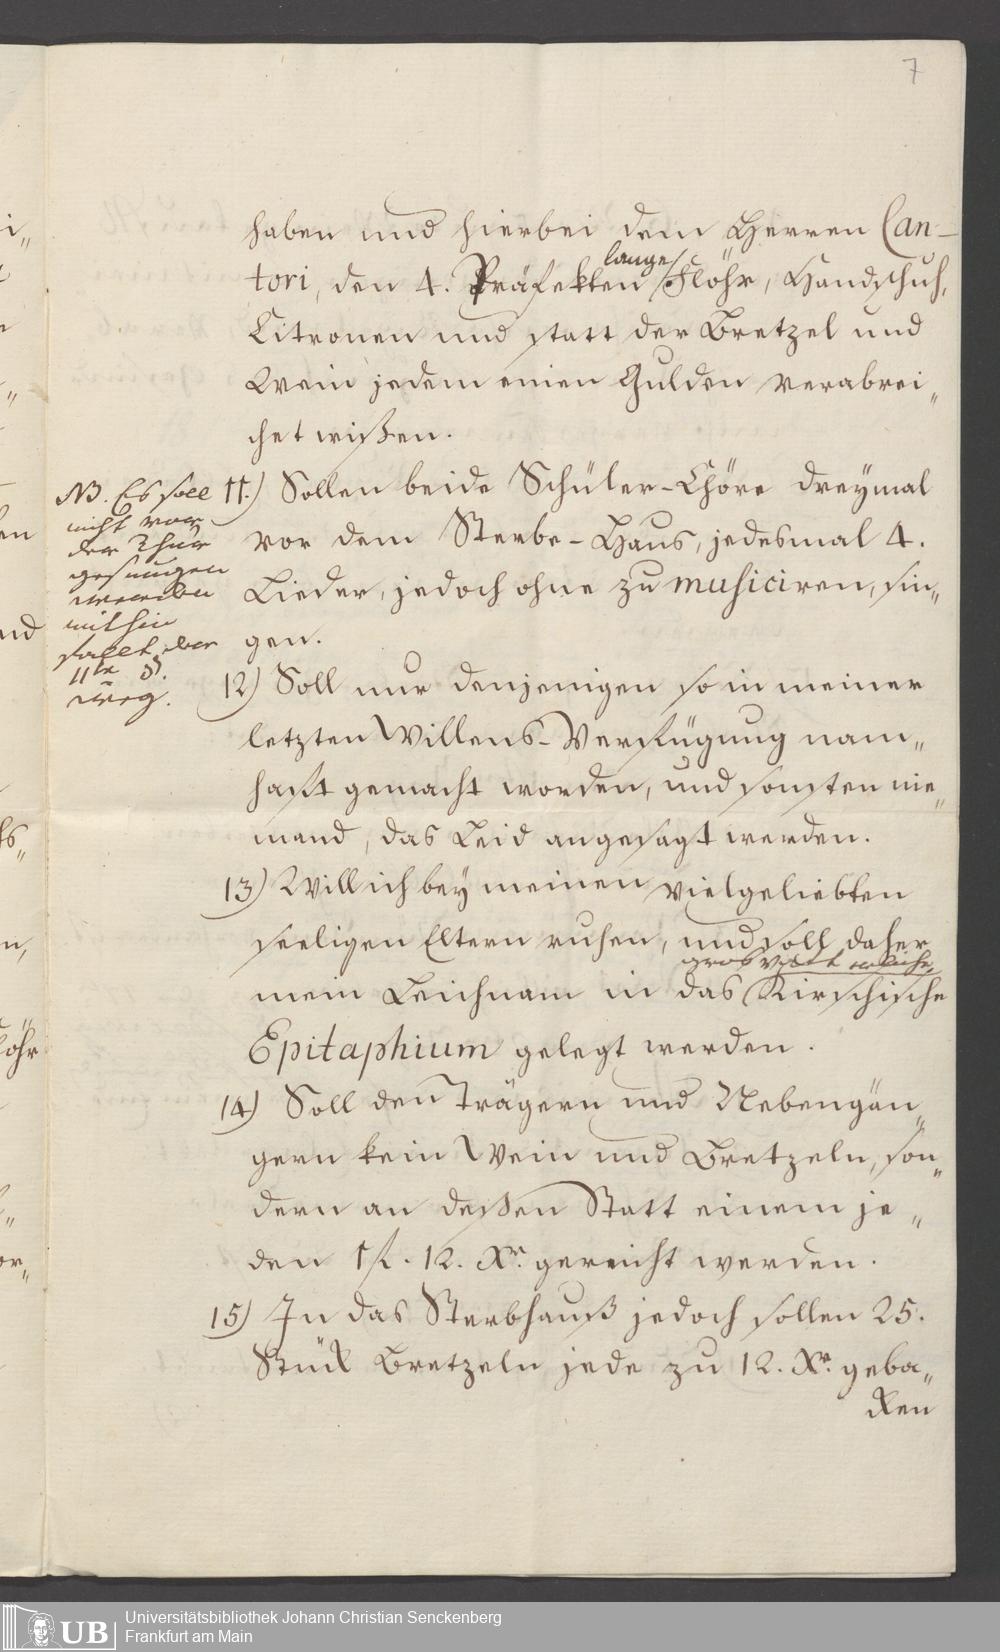 7
haben und hierbei dem Herren Can-
tori, den 4. Präfekten lange Flöhr, Handschuh,
Citronen und statt der Bretzel und
Wein jedem einen Gulden verabrei„
chet wißen.
NB. Es soll
nicht vor
der Thür
gesungen
werden
mithin
fällt der
11te §.
weg.
11.) Sollen beide Schüler-Chöre dreymal
vor dem Sterbe-Haus, jedesmal 4.
Lieder, jedoch ohne zu musiciren, sin„
gen.
12) Soll nur denjenigen so in meiner
letzten Willens-Verfügung nam„
haft gemacht worden, und sonsten nie„
mand, das Leid angesagt werden.
13) Will ich bey meinen vielgeliebten
seeligen Eltern ruhen, und soll daher
grosvätterliche
mein Leichnam in das Kirschische
Epitaphium gelegt werden.
14) Soll den Trägern und Nebengän„
gern kein Wein und Bretzeln, son„
dern an deßen Statt einem je„
den 1 fl. 12. Xr. gereicht werden.
15) In das Sterbhauß jedoch sollen 25.
Stück Bretzeln jede zu 12. Xr. geba„
cken
Universitätsbibliothek Johann Christian Senckenberg
Frankfurt am Main
UB